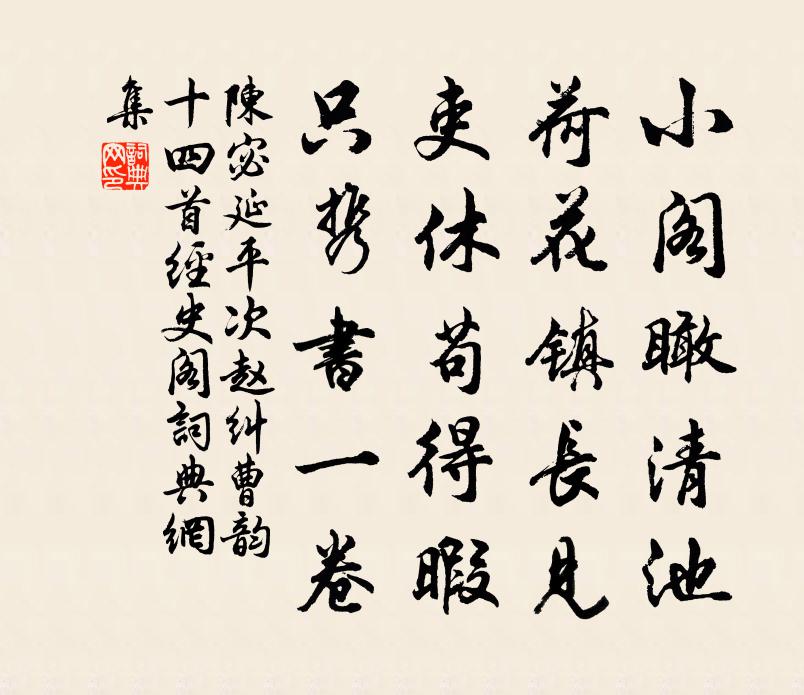 小阁瞰清池
荷花镇長見
吏休苟得暇
只携書一卷
陳宓延平次赵纠曹韵
十四首經史阁詞典網
集
詞典
网印